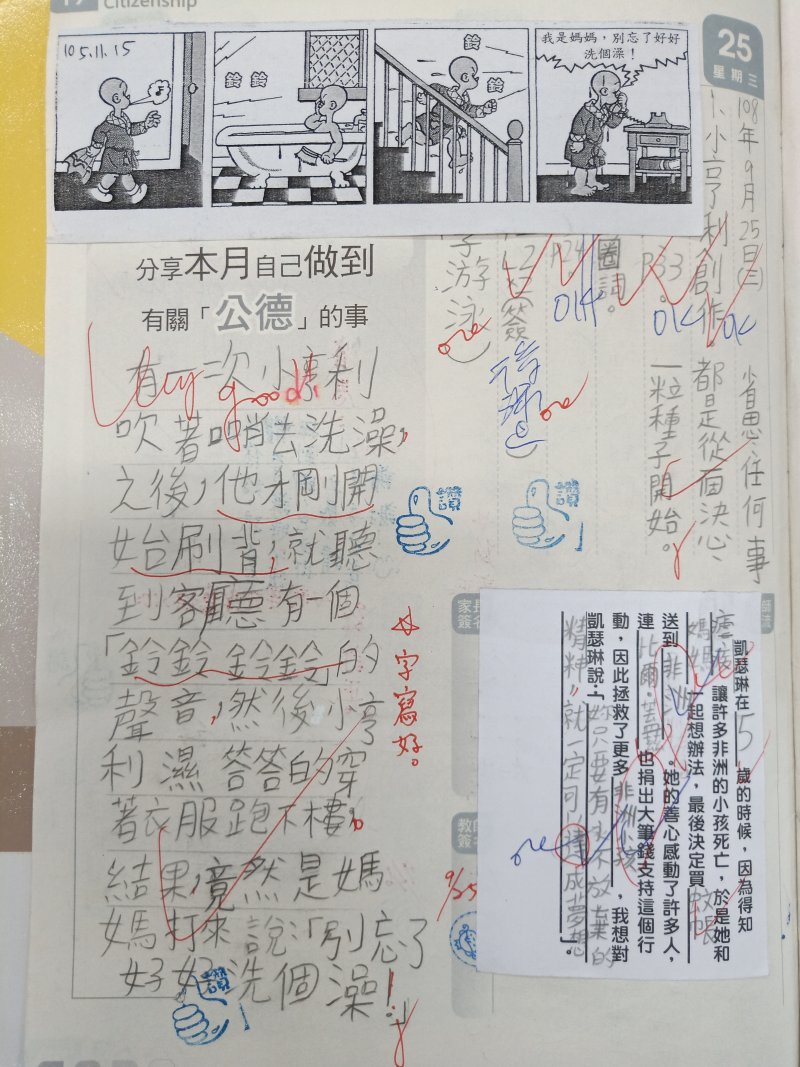 Citizenship
105.11.15
鈴鈴
鈴
鈴
我是媽媽，別忘了好好
洗個澡！
25
星期三
108年9月25日(三)
1、小亨利創作
P.33。
圈詞。
P.24
簽
游泳
省思：任何事
都是從一個決心、
一粒種子開始。
OK
OK
OK
分享本月自己做到
有關「公德」的事
Very good!
有一次小亨利
吹著哨去洗澡，
之後，他才剛開
始刷背，就聽
到客廳有一個
「鈴鈴鈴鈴」的
聲音，然後小亨
利濕答答的穿
著衣服跑下樓，
結果，竟然是媽
媽打來說：「別忘了
好好洗個澡！」
字寫好。
讚
讚
讚
9/25
凱瑟琳在5歲的時候，因為得知
瘧疾讓許多非洲的小孩死亡，於是她和
媽媽一起想辦法，最後決定買蚊帳
送到非洲。她的善心感動了許多人，
連比爾．蓋茲也捐出大筆錢支持這個行
動，因此拯救了更多非洲小孩，我想對
凱瑟琳說：「妳只要有永不放棄的
精神，就一定可以達成夢想」。